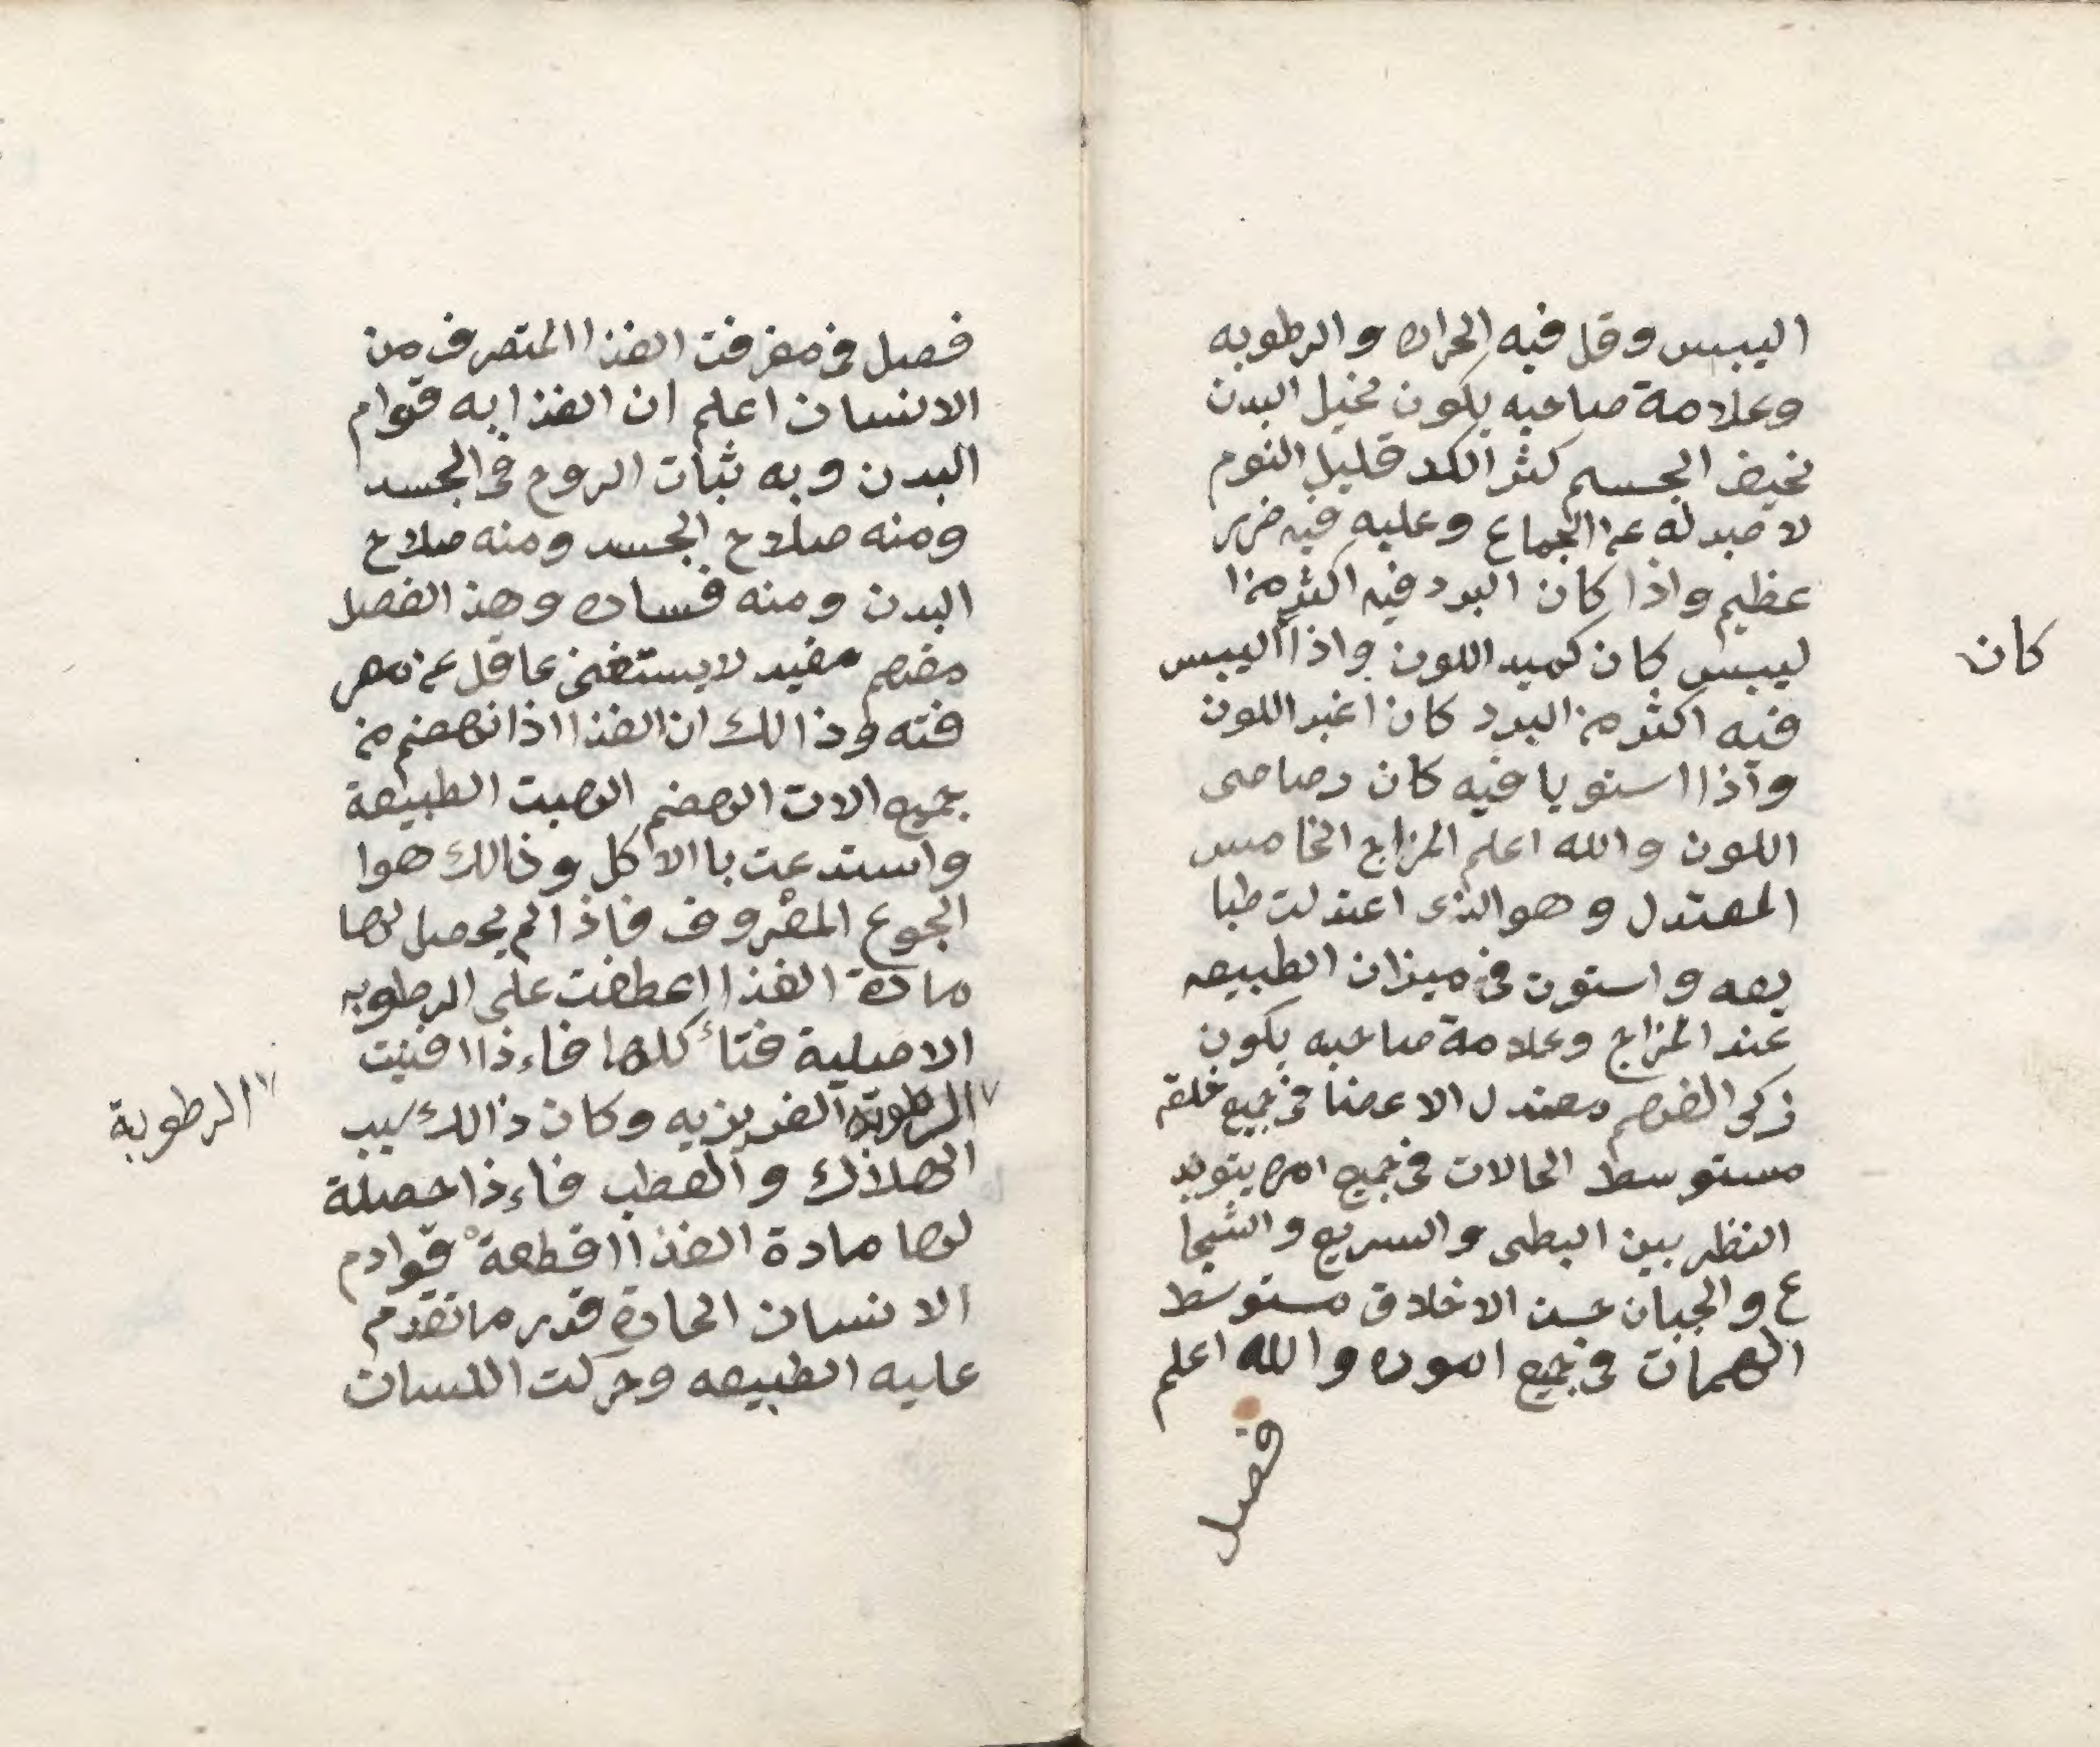 اليبس وقل فيه الحراره والرطوبه
وعلامة صاحبه يكون نحيل البدن
نحيف الجسم كثر الكد قليل النوم
لا صبر له عن الجماع وعليه فيه ضرر
عظيم واذا كان البرد فيه اكثر من ا
ليبس كان كميد اللون واذا اليبس
كان
فيه اكثر من البرد كان اغبر اللون
واذا استويا فيه كان رصاصى
اللون والله اعلم المزاج الخامس
المعتدل وهو الذى اعتدلت طبا
يعه واستوت فى ميزان الطبيعه
عند المزاج وعلامة صاحبه يكون
زكى الفهم معتدل الاعضا فى جميع خلقه
مستوسط الحالات فى جميع امره
النظر بين البطى والسريع والشجا
ع والجبان حسن الاخلاق مستوسط
الهمات فى جميع اموره والله اعلم
فصل
فصل فى معرفت الغذا المتصرف من
الانسان اعلم ان الغذا به قوام
البدن وبه ثبات الروح فى الجسد
ومنه صلاح الجسد ومنه صلاح
البدن ومنه فساده وهذ الفصل
مفهم مفيد لا يستغنى عاقل عن معر
فته وذالك ان الغذا اذا نهضم من
جميع الات الهضم الهبت الطبيعة
واستدعت باالاكل وذالك هوا
الجوع المعروف فاذا لم يحصل لها
مادة الغذا اعطفت على الرطوبه
الاصلية فتأكلها فاءذا افنيت
الرطوبة الغريزيه وكان ذالك سبب
الرطوبة
الهلاك والعطب فاءذا حصلة
لها مادة الغذا اقطعة قوادم
الانسان الحادة قدر ما تقدم
عليه الطبيعه وحركت اللسان